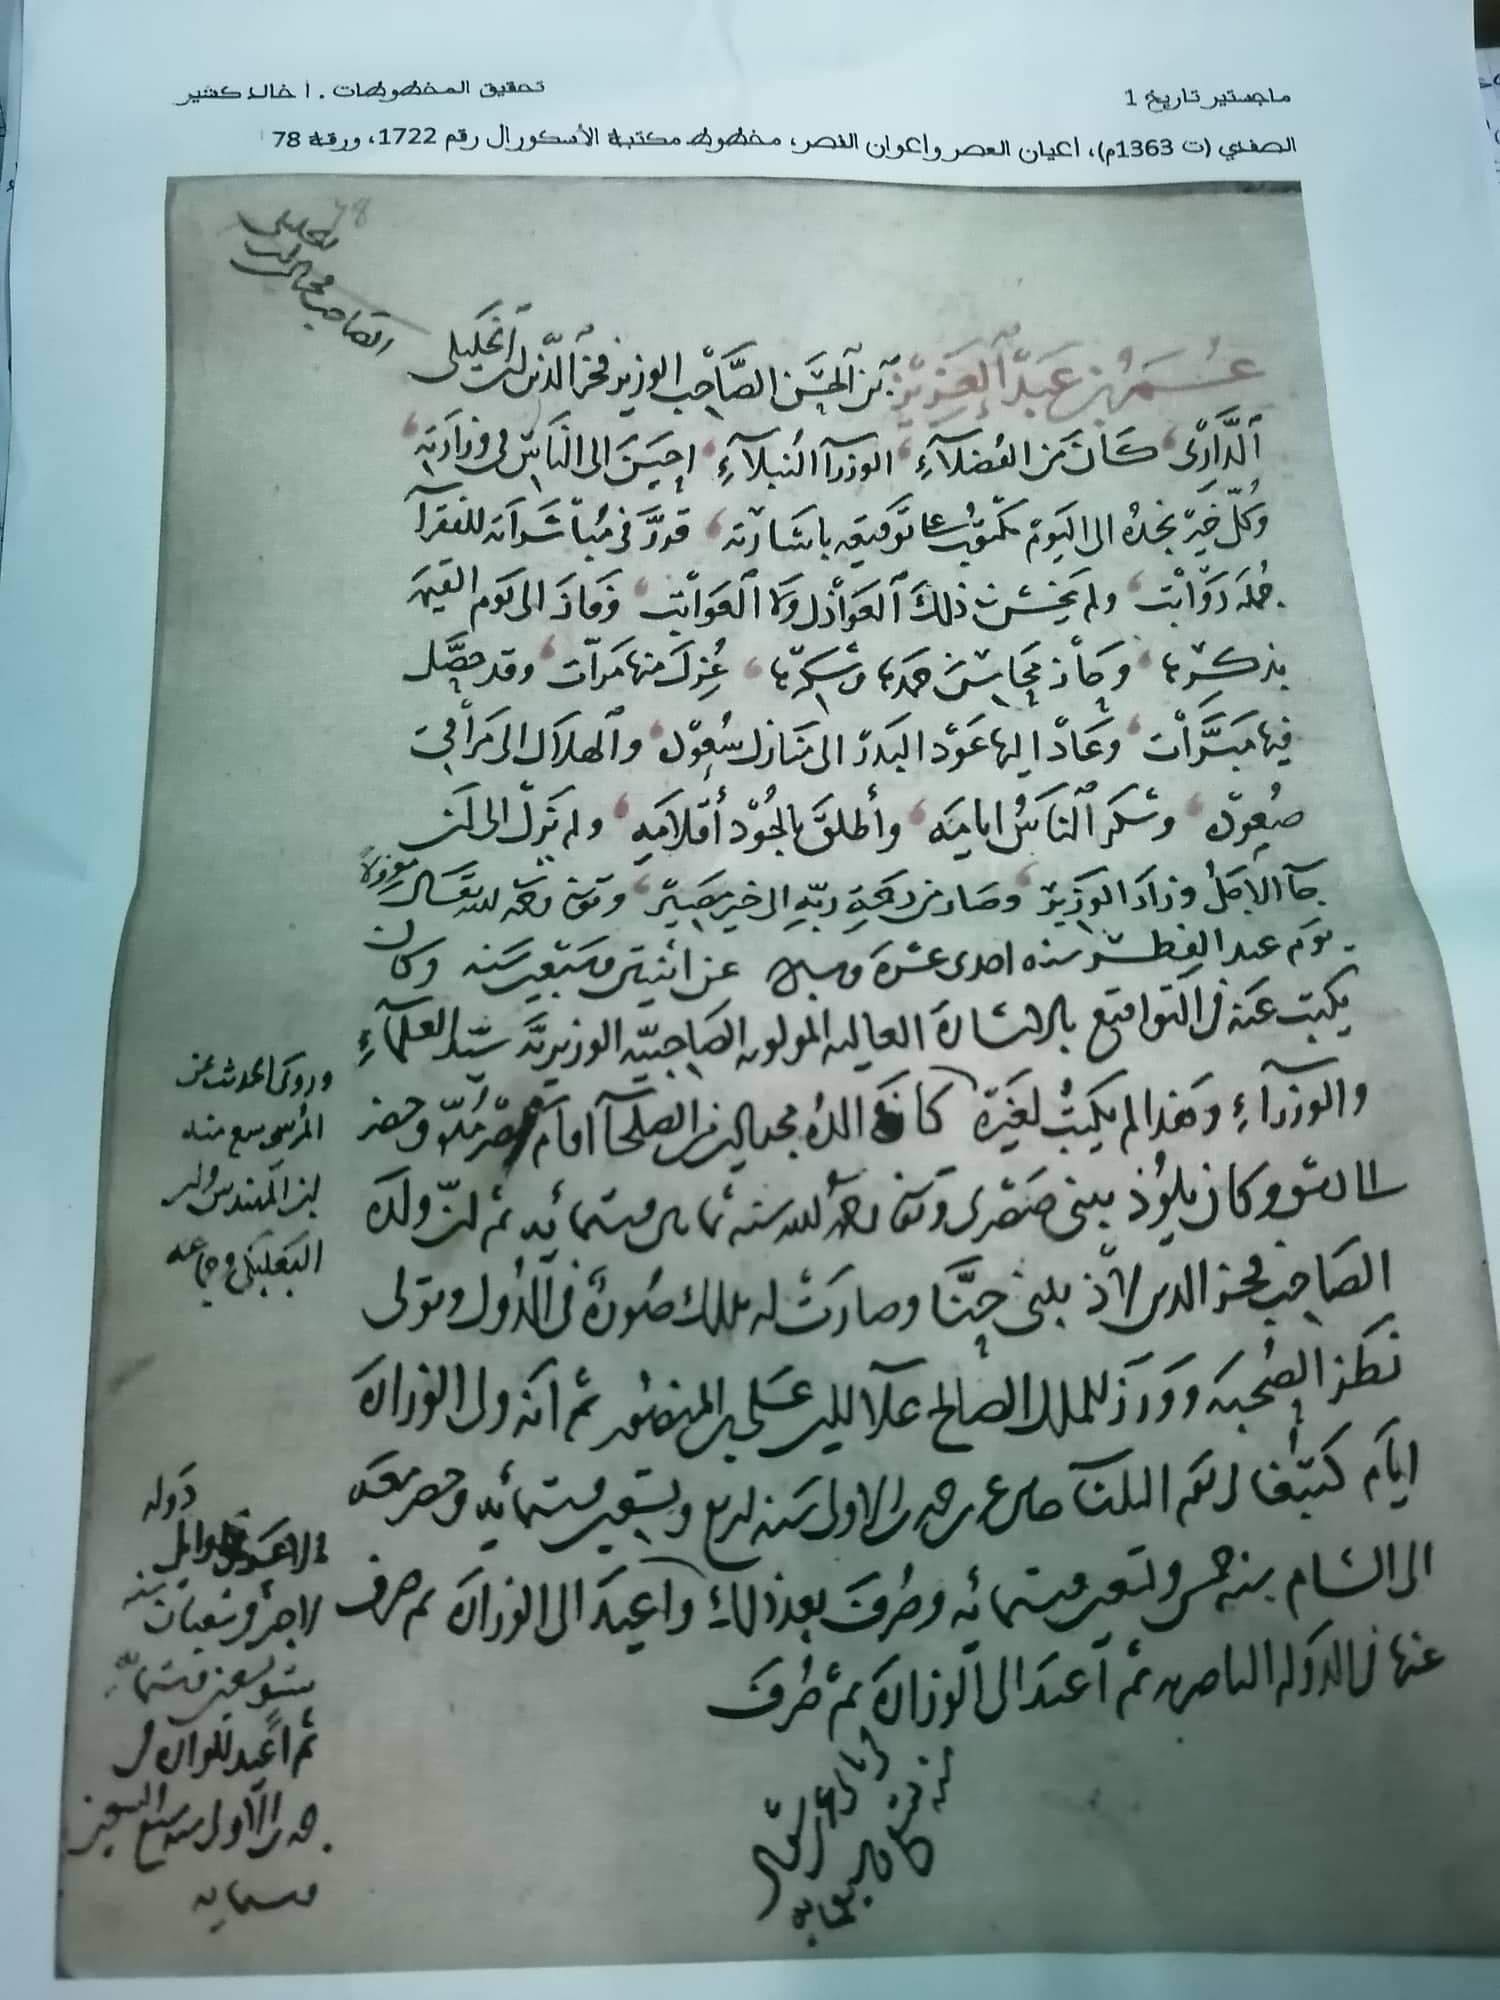 ماجستير تاريخ 1
تحقيق المخطوطات . ا خالد كشير
الصفدي (ت 1363م)، اعيان العصر واعوان النصر، مخطوط مكتبة الأسكورال رقم 1722، ورقة 78
78
الخليلي
الصاحب فخر الدين
عُمَر بن عَبْد العَزِيز بن الحسَن الصَّاحِب الوزير فخر الدّين ابن الخليلي
الدَّاري كَانَ مَن الفُضَلآءِ الوزرآ النُبلآءِ احسَنَ الى النَاس في وزارَتِه
وكُلّ خَيرْ نجدُه الى اليَوم مكتوب على توقيعه باشارته قدرَّ في مُباشراته للفقرآ
جُملَه رَوَاتب ولم يخشَ في ذلكَ العَوَاذل ولا العَوَاتب وفَازَ الى يَوم القيمه
بذكرها وحَاز محاسن حمدها وشكرها عُزلَ منها مَرّات وقد حصَّل
فيها مَبَرَّات وعَادَ اليها عَوْد البَدر الى منَازل سُعوده والهلال الى مَرَاقي
صُعوده وشكر الناسُ ايامَه وأطلقَ بالجُود أقلامَه ولم يَزلْ الى ان
جآ الاجَلُ وزادَ الوَزِير وصَار من رحمَةِ ربّهِ الى خير مَصِير وتوفى رحمه الله تعالى معزولاً
يوم عيد الفِطر سنه احدى عشرَة وسبع مايه عن اثنتين وسَبْعين سَنه وكان
يكتب عنه في التواقيع بالاشارة العاليه المولويه الصَاحِبيّه الوزيريَّه سَيّد العلمآءِ
والوزرآءِ وهَذا لم يكتبْ لغَيْره كان والدُه مجد الدين من الصلحآ اقامَ بمصر مُدّه وحضر
الى دمشق وكان يلُوذ ببنى صَصْرى وتوفى رحمه الله سنه ثمانين وستمائه ثم انّ ولده
الصَاحِب فخر الدين لاذَ ببنى حِنَّا وصارَتْ له بذلك صُورة في الدُول وتولى
نَظر الصُحبَه ووَزَر للملك الصَالح علآ الدين عَلى بن المنصُور ثم انه ولى الوزاره
ايَّام كتبغا في يَوم الثلثآ جمادى الاولى سَنه اربع وتسعين وستمائه وحضر معَه
الى الشام سنه خمس وتسعين وستمائه وصُرفَ بعد ذلك واعيدَ الى الوزارَه ثم صرف
عنها في الدوله الناصريه ثم اعيدَ الى الوزارَه ثم صُرفَ
وروى الحديث عن
المُرسى سمع منه
ابن المُهندس وابن
البَعلبكى وجماعه
دَوله
الاجين وشعبان سنه
ست وتسعين وستمائه
ثم اعيد للوزاره في
جمدى الاولى سنه سبع وتسعين
وستمايه